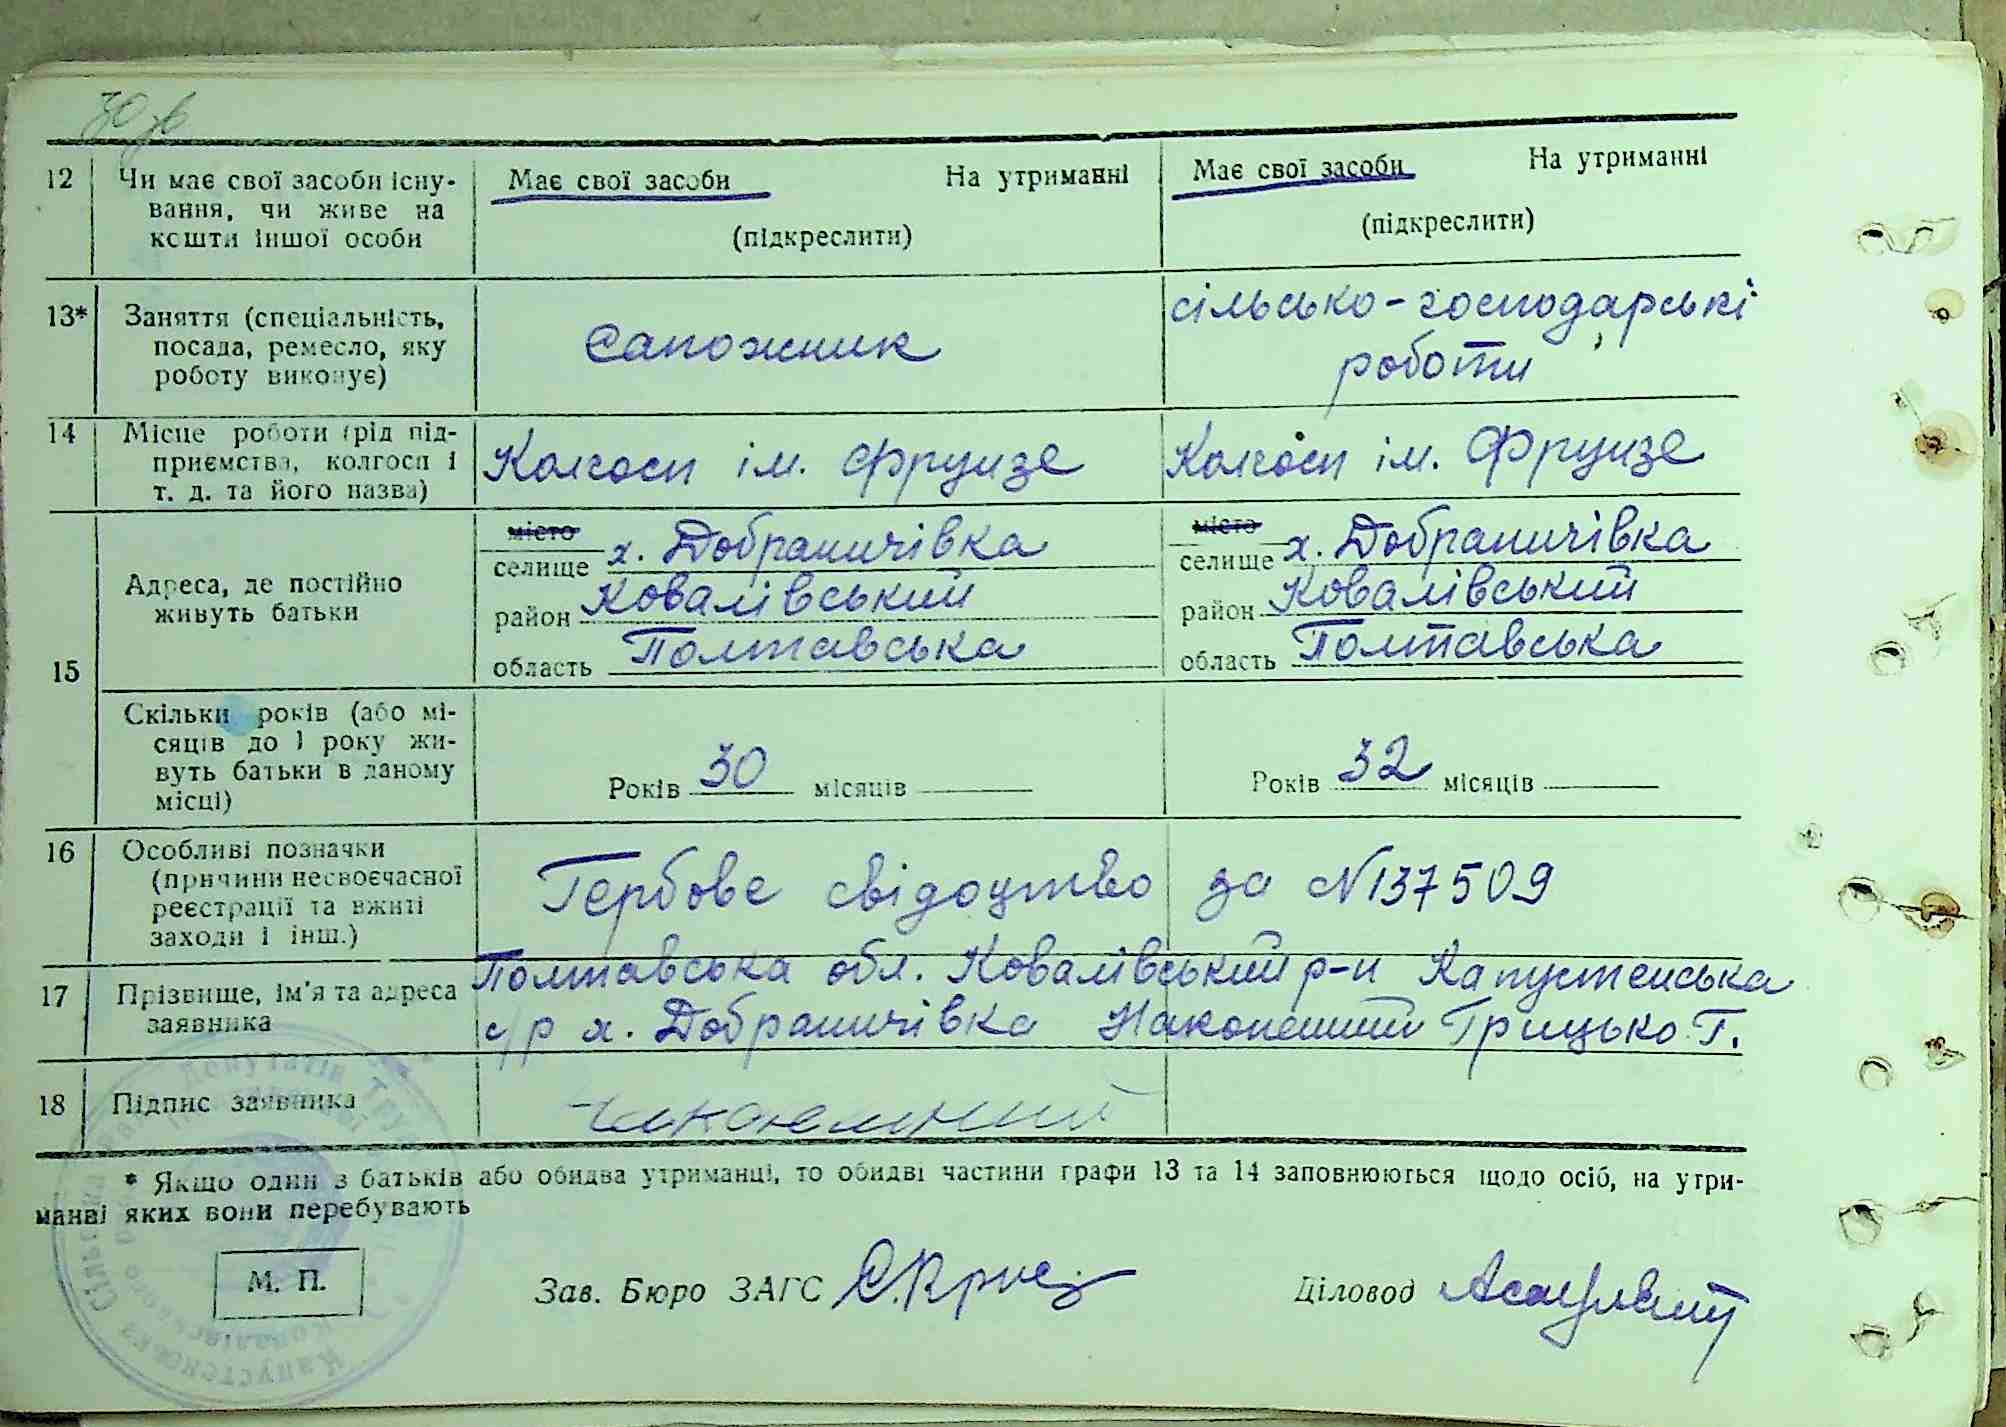 30 зв
12 Чи має свої засоби існу-
вання, чи живе на
кошти іншої особи
Має свої засоби На утриманні
(підкреслити)
Має свої засоби На утриманні
(підкреслити)
13* Заняття (спеціальність,
посада, ремесло, яку
роботу виконує)
Сапожник
сільсько-господарські
роботи
14 Місце роботи (рід під-
приємства, колгосп і
т. д. та його назва)
Колгосп ім. Фрунзе
Колгосп ім. Фрунзе
15 Адреса, де постійно
живуть батьки
місто
селище х. Добраничівка
район Ковалівський
область Полтавська
місто
селище х. Добраничівка
район Ковалівський
область Полтавська
Скільки років (або мі-
сяців до 1 року жи-
вуть батьки в даному
місці)
Років 30 місяців
Років 32 місяців
16 Особливі позначки
(причини несвоєчасної
реєстрації та вжиті
заходи і інш.)
Гербове свідоцтво за №137509
17 Прізвище, ім'я та адреса
заявника
Полтавська обл. Ковалівський р-н Капустенська
с/р х. Добраничівка Наконешний Грицько Г.
18 Підпис заявника
* Якщо один з батьків або обидва утриманці, то обидві частини графи 13 та 14 заповнюються щодо осіб, на утри-
манні яких вони перебувають
М. П.
Зав. Бюро ЗАГС
Діловод